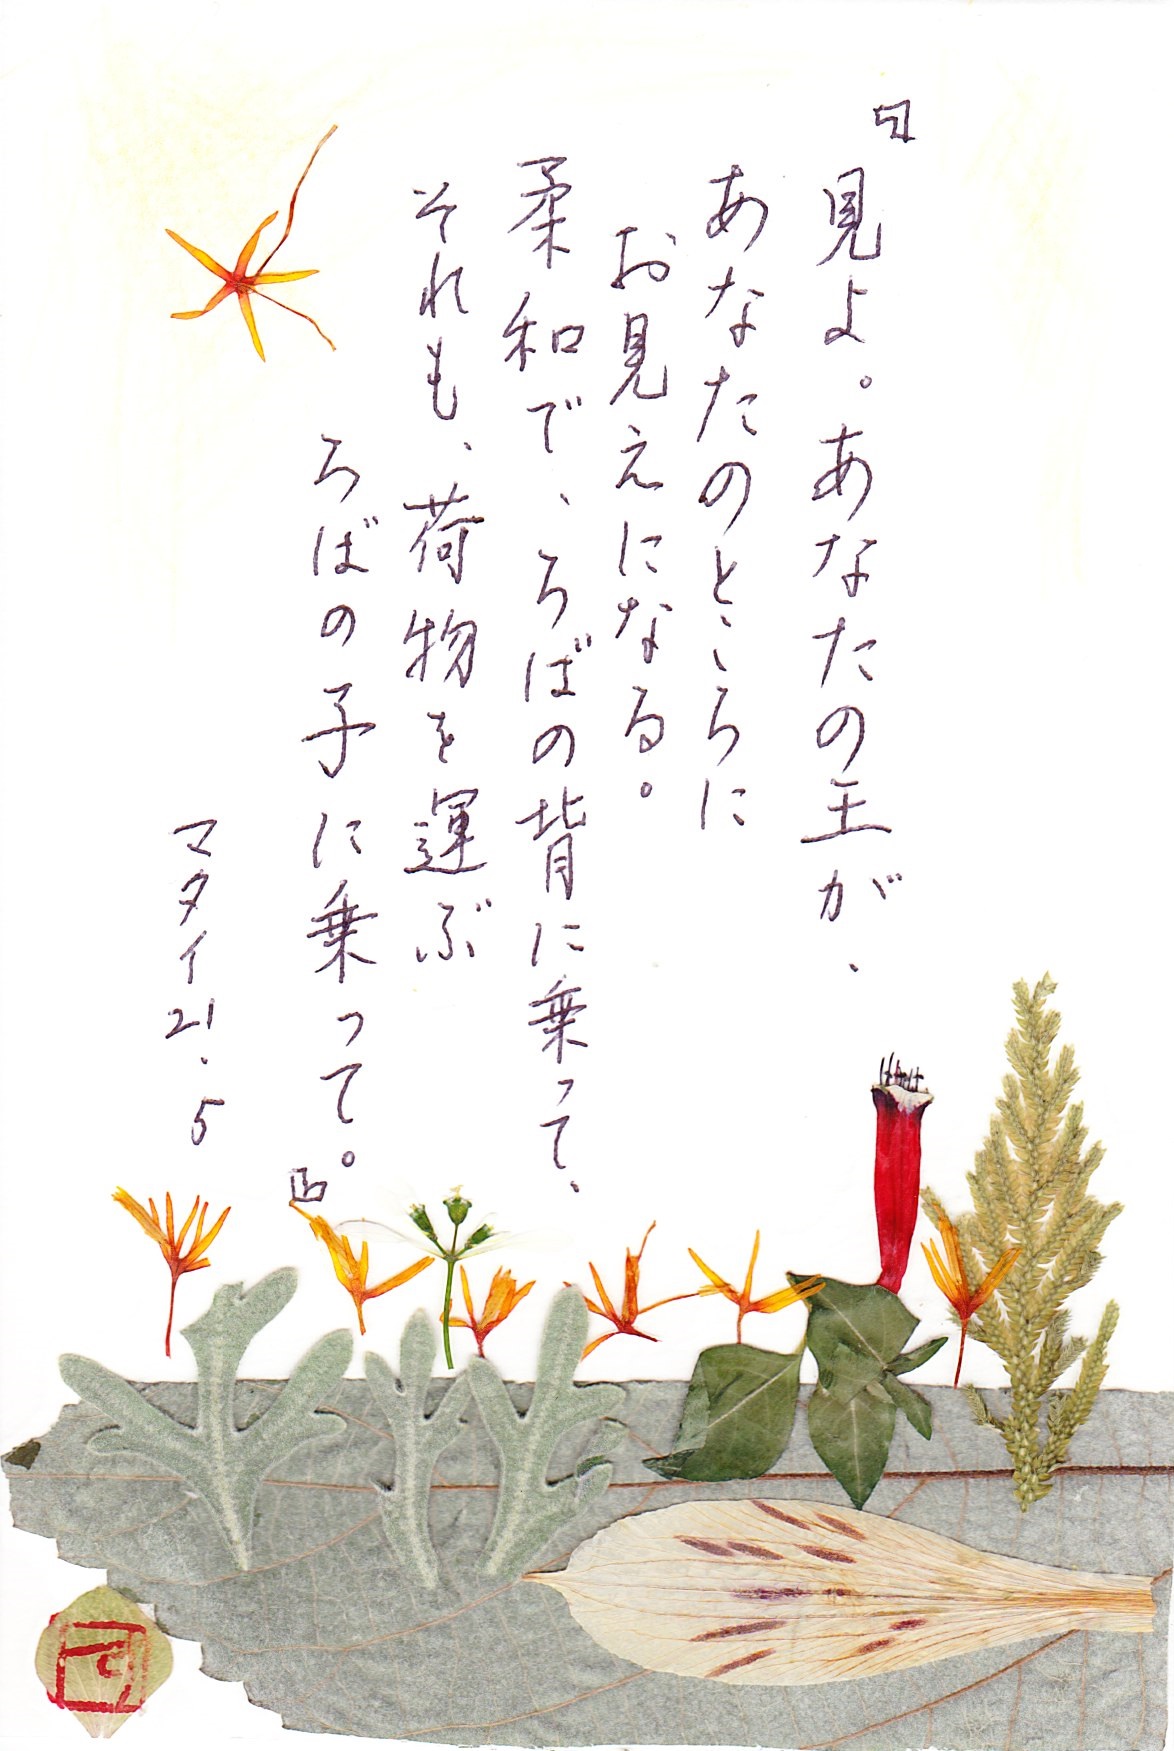 『見よ。あなたの王が、
あなたのところに
お見えになる。
柔和で、ろばの背に乗って、
それも、荷物を運ぶ
ろばの子に乗って。』
マタイ21.5